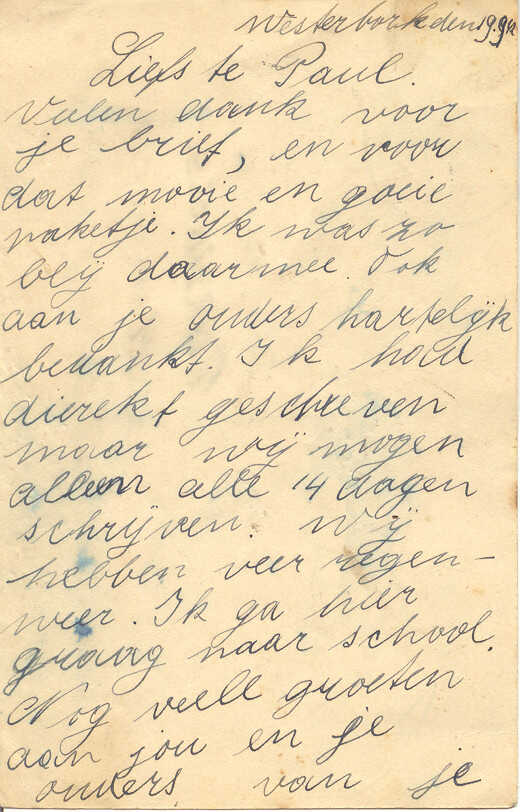 Westerbork den 19.9
Liefste Paul.
Vulen dank voor
je brief, en voor
dat mooie en goeie
paketje. Ik was zo
blij daarmee. Ook
aan je ouders hartelijk
bedankt. Ik had
dierekt geschreven
maar wij mogen
alleen alle 14 dagen
schrijven. Wij
hebben veer regen-
weer. Ik ga hier
graag naar school.
Nog veell groeten
aan jou en je
ouders van je